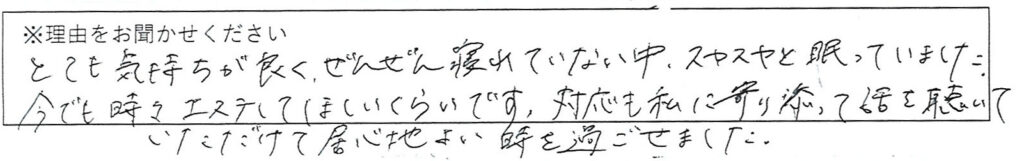 ※理由をお聞かせください
とても気持ちが良く、ぜんぜん寝れていない中、スヤスヤと眠っていました。
今でも時々エステしてほしいくらいです。対応も私に寄り添って話を聴いて
いただけて居心地よい時を過ごせました。